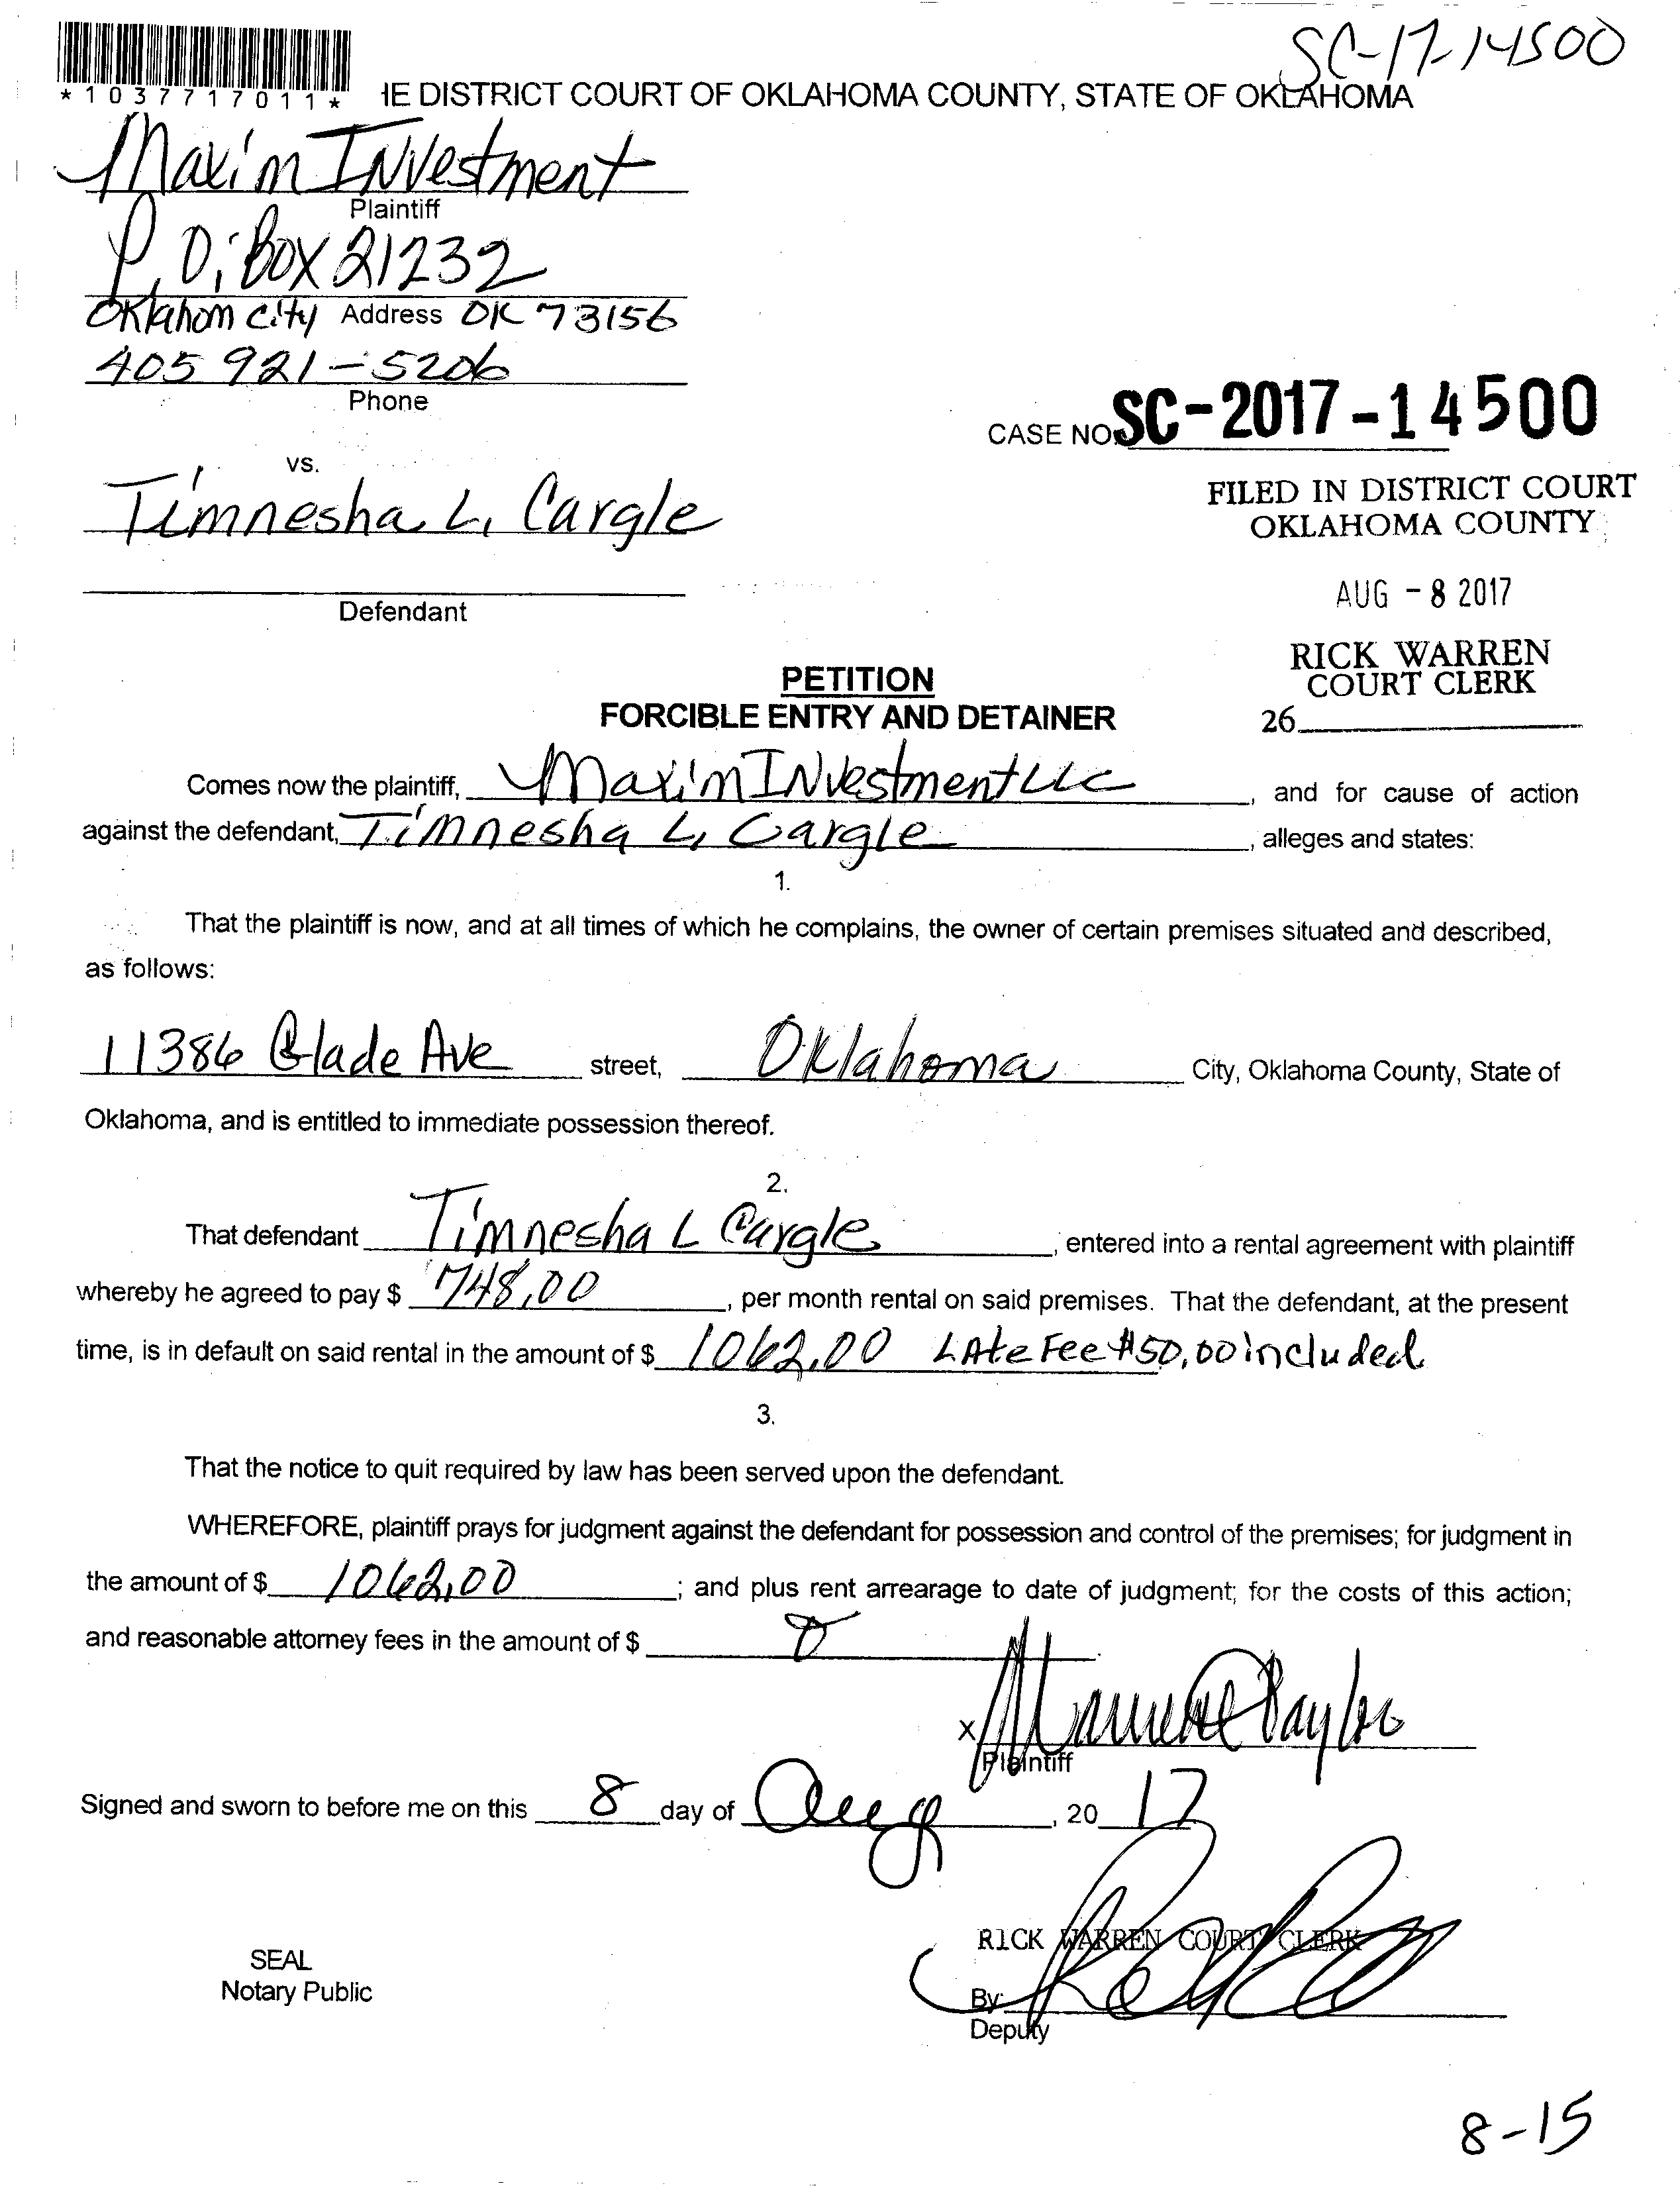 SC-17-14500
*1037717011* HE DISTRICT COURT OF OKLAHOMA COUNTY, STATE OF OKLAHOMA
Maxim INvestment
Plaintiff
P.O. Box 21232
Oklahom City Address OK 73156
405 921-5206
Phone
CASE NO. SC-2017-14500
vs.
FILED IN DISTRICT COURT
OKLAHOMA COUNTY
Timnesha L. Cargle
AUG - 8 2017
Defendant
RICK WARREN
COURT CLERK
PETITION
FORCIBLE ENTRY AND DETAINER
26
Comes now the plaintiff, Maxim INvestment LLC, and for cause of action
against the defendant, Timnesha L. Cargle, alleges and states:
1.
That the plaintiff is now, and at all times of which he complains, the owner of certain premises situated and described,
as follows:
11386 Glade Ave street, Oklahoma City, Oklahoma County, State of
Oklahoma, and is entitled to immediate possession thereof.
2.
That defendant Timnesha L Cargle, entered into a rental agreement with plaintiff
whereby he agreed to pay $ 748.00, per month rental on said premises. That the defendant, at the present
time, is in default on said rental in the amount of $ 1062.00 LAte Fee $50.00 included
3.
That the notice to quit required by law has been served upon the defendant.
WHEREFORE, plaintiff prays for judgment against the defendant for possession and control of the premises; for judgment in
the amount of $ 1062.00; and plus rent arrearage to date of judgment; for the costs of this action;
and reasonable attorney fees in the amount of $ 0.
X
Plaintiff
Signed and sworn to before me on this 8 day of Aug, 20 17
RICK WARREN COURT CLERK
SEAL
Notary Public
By:
Deputy
8-15